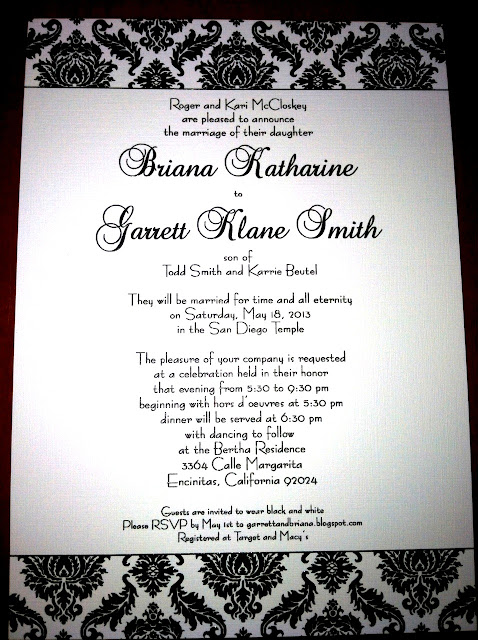 Roger and Kari McCloskey
are pleased to announce
the marriage of their daughter
Briana Katharine
to
Garrett Klane Smith
son of
Todd Smith and Karrie Beutel
They will be married for time and all eternity
on Saturday, May 18, 2013
in the San Diego Temple
The pleasure of your company is requested
at a celebration held in their honor
that evening from 5:30 to 9:30 pm
beginning with hors d'oeuvres at 5:30 pm
dinner will be served at 6:30 pm
with dancing to follow
at the Bertha Residence
3364 Calle Margarita
Encinitas, California 92024
Guests are invited to wear black and white
Please RSVP by May 1st to garrettandbriana.blogspot.com
Registered at Target and Macy's